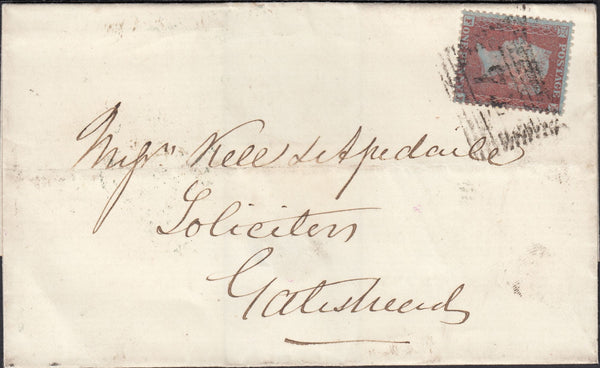 POSTAGE
ONE
Messrs Kell & Apedaile
Solicitors
Gateshead